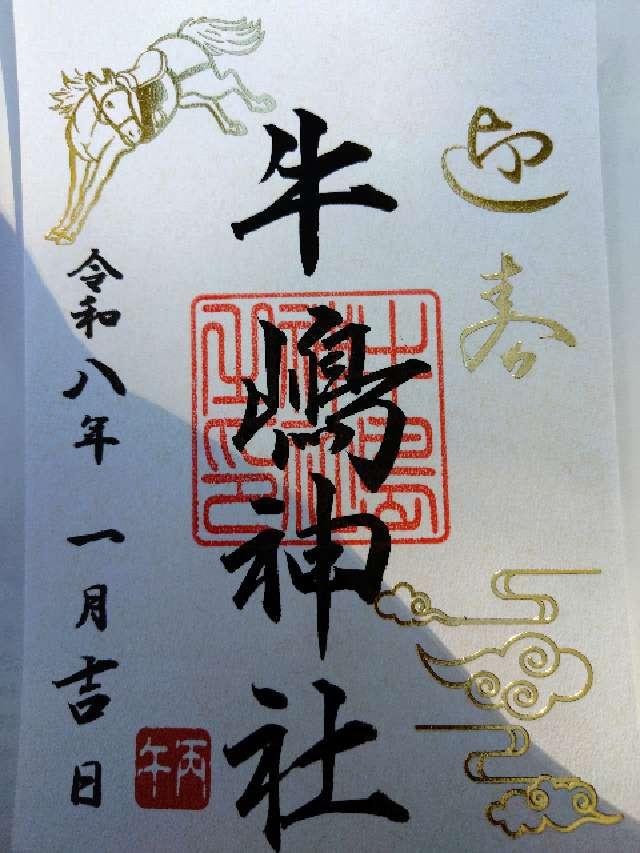 迎春
牛嶋神社
令和八年 一月吉日
丙午